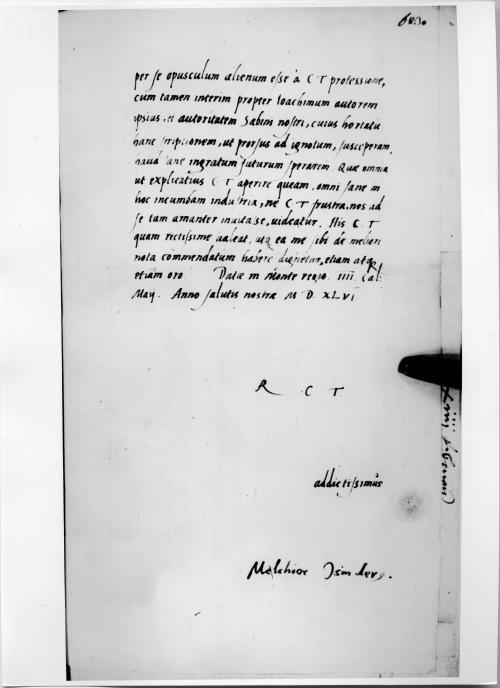 per se opusculum alienum esse à C T professione,
cum tamen interim propter Ioachimum autorem
ipsius, et autoritatem Sabini nostri, cuius hortatu
hanc scriptionem, ut prorsus ad ignotum, susceperam,
haud sane ingratum futurum sperarem. Quæ omnia
ut explicatius C T aperire queam, omni sane in
hoc incumbam industria, ne C T frustra, nos ad
se tam amanter inuitasse, uideatur. His C. T
quam rectissime ualeat, utq ea me sibi de meliori
nota commendatum habere dignetur, etiam atq
etiam oro. Datæ in Monte regio. IIII Cal:
May. Anno salutis nostræ M D. XLVI
R C T.
addictissimus
Melchior Isinder9.